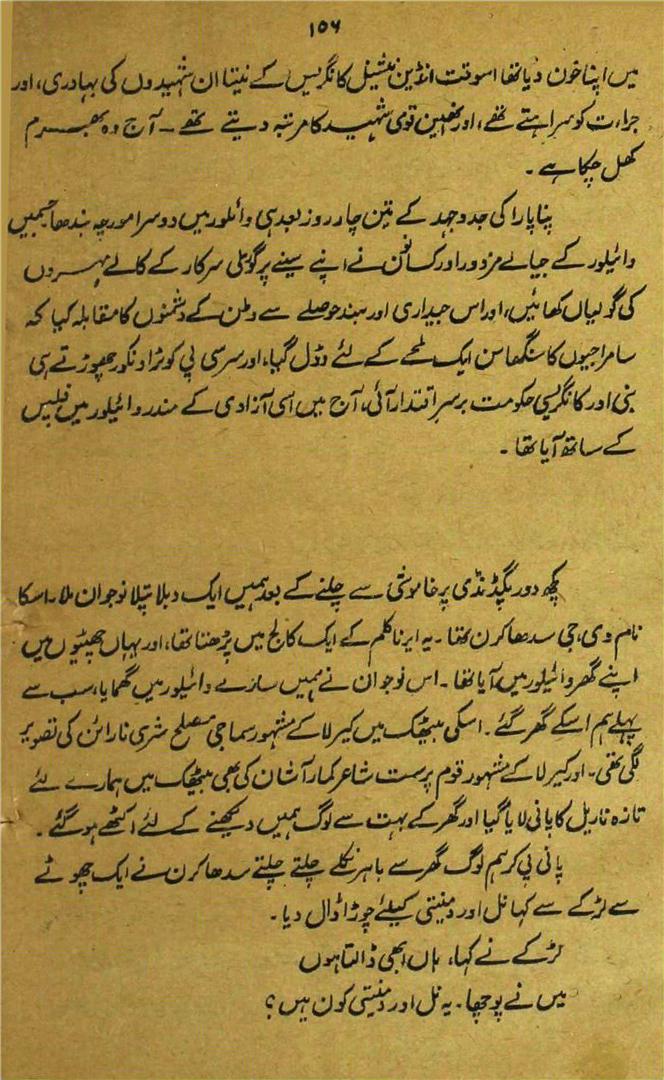 ۱۵۶
میں اپنا خون دیا تھا اسوقت انڈین نیشنل کانگریس کے نیتا ان شہیدوں کی بہادری، اور
جراءت کو سراہتے تھے، اور انھیں قومی شہید کا مرتبہ دیتے تھے ۔ آج وہ بھرم
کھل چکا ہے ۔
پناپارا کی جدوجہد کے تین چار روز بعد ہی وائلور میں دوسرا مورچہ بندھا جسمیں
وائیلور کے جیالے مزدور اور کسانوں نے اپنے سینے پر گوملی سرکار کے کالے پہروں
کی گولیاں کھائیں، اور اس جیداری اور بلند حوصلے سے وطن کے دشمنوں کا مقابلہ کیا کہ
سامراجیوں کا سنگھاسن ایک لمحے کے لئے ڈول گیا، اور سر سی پی کو ٹراونکور چھوڑتے ہی
بنی اور کانگریسی حکومت برسرِ اقتدار آئی، آج میں اسی آزادی کے مندر وائیلور میں فلپس
کے ساتھ آیا تھا ۔
کچھ دور پگڈنڈی پر خاموشی سے چلنے کے بعد ہمیں ایک دبلا پتلا نوجوان ملا ۔ اسکا
نام وی، جی سدھاکرن تھا ۔ یہ ایرناکلم کے ایک کالج میں پڑھتا تھا، اور یہاں چھٹیوں میں
اپنے گھر وائیلور میں آیا تھا ۔ اس نوجوان نے ہمیں سارے وائیلور میں گھمایا، سب سے
پہلے ہم اسکے گھر گئے ۔ اسکی بیٹھک میں کیرلا کے مشہور سماجی مصلح شری نارائن کی تصویر
لگی تھی ۔ اور کیرلا کے مشہور قوم پرست شاعر کمار آشان کی بھی بیٹھیک میں ہمارے لئے
تازہ ناریل کا پانی لایا گیا اور گھر کے بہت سے لوگ ہمیں دیکھنے کے لئے اکٹھے ہو گئے ۔
پانی پی کر ہم لوگ گھر سے باہر نکلے چلتے چلتے سدھاکرن نے ایک چھوٹے
سے لڑکے سے کہا نل اور دمنیتی کیلئے چوڑا ڈال دیا ۔
لڑکے نے کہا، ہاں ابھی ڈالتا ہوں
میں نے پوچھا ۔ یہ نل اور دمنیتی کون ہیں ؟